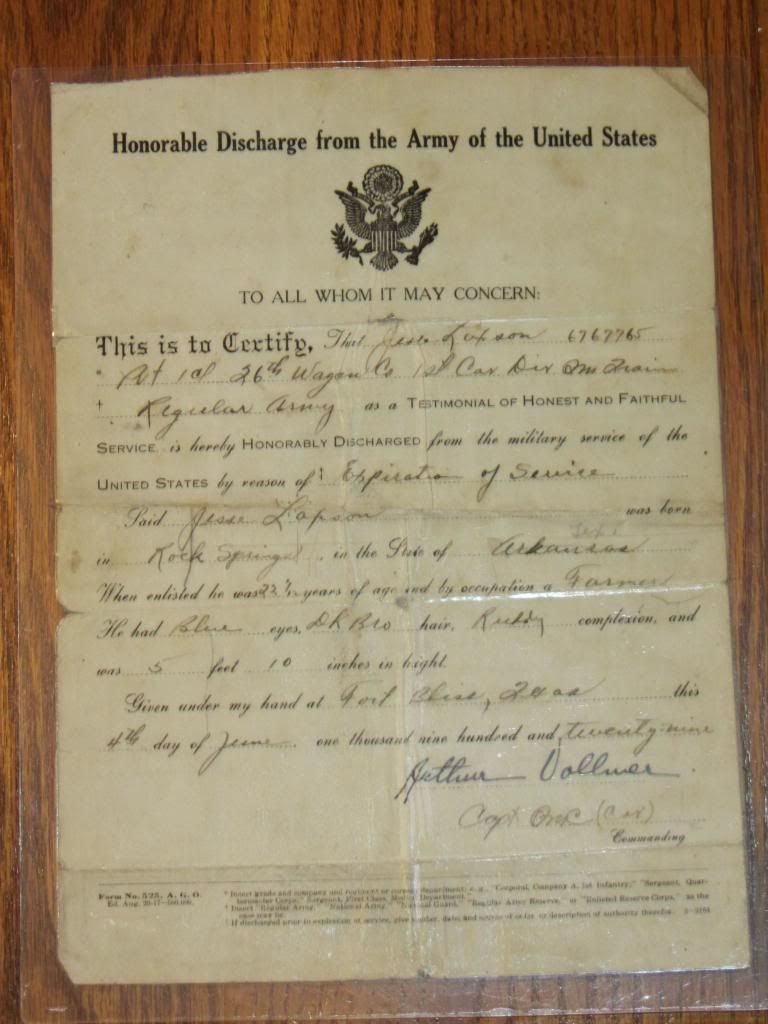 Honorable Discharge from the Army of the United States
TO ALL WHOM IT MAY CONCERN:
This is to Certify, That Jesse Lopson 6767765
* 26th Wagon Co 1st Cav Div QM Train
† Regular Army as a TESTIMONIAL OF HONEST AND FAITHFUL
SERVICE is hereby HONORABLY DISCHARGED from the military service of the
UNITED STATES by reason of ‡ Expiration of Service
Said Jesse Lopson was born
in Rock Springs, in the State of Arkansas
When enlisted he was years of age and by occupation a Farmer
He had Blue eyes, Dk Bro hair, Ruddy complexion, and
was 5 feet 10 inches in height.
Given under my hand at Fort Bliss, Texas this
4th day of June, one thousand nine hundred and twenty-nine
Arthur Vollmer
Capt QMC (Cav)
Commanding
Form No. 525, A. G. O.
Ed. Aug. 20-17-500,000.
* Insert grade and company and regiment or corps or department; e. g., "Corporal, Company A, 1st Infantry;" "Sergeant, Quar-
termaster Corps;" "Sergeant, First Class, Medical Department."
† Insert "Regular Army," "National Army," "National Guard," "Regular Army Reserve," or "Enlisted Reserve Corps," as the
case may be.
‡ If discharged prior to expiration of service, give number, date, and source of order or description of authority therefor. 3-3164